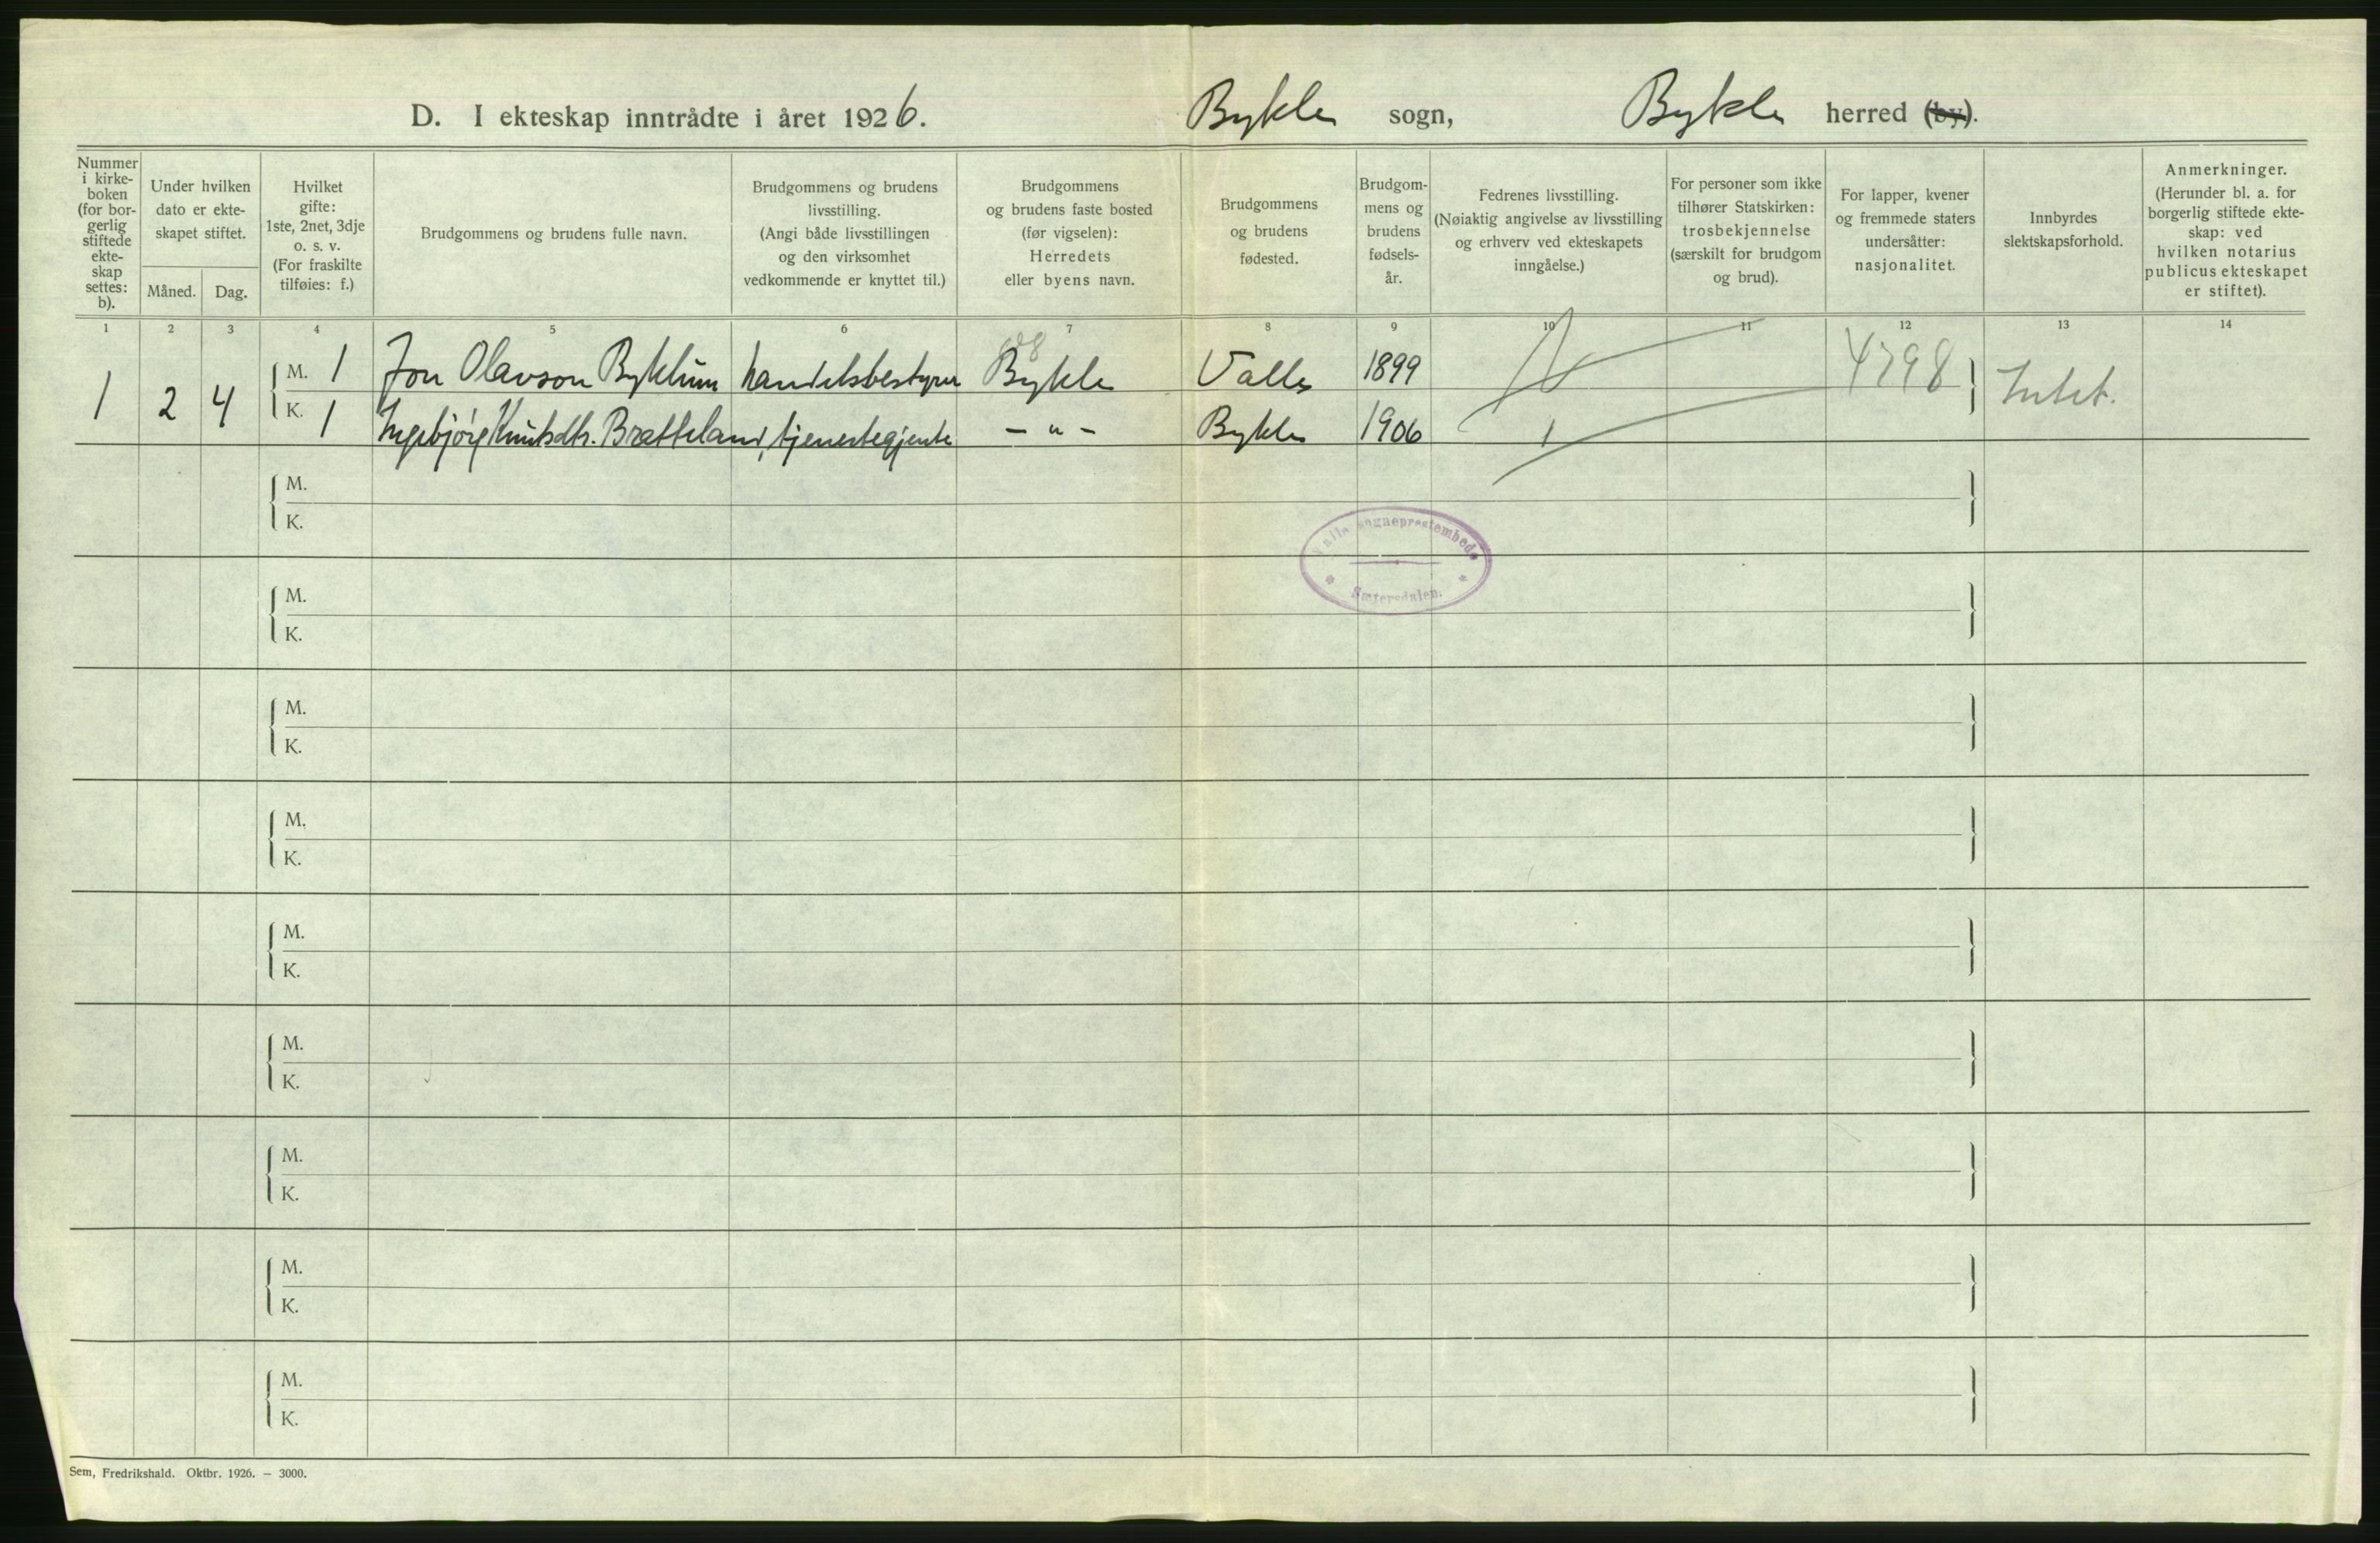 D. I ekteskap inntrådte i året 1926. Bykle sogn, Bykle herred (by).
Nummer
i kirke-
boken
(for bor-
gerlig
stiftede
ekte-
skap
settes:
b).
Under hvilken
dato er ekte-
skapet stiftet.
Måned. Dag.
Hvilket
gifte:
1ste, 2net, 3dje
o. s. v.
(For fraskilte
tilføies: f.)
Brudgommens og brudens fulle navn.
Brudgommens og brudens
livsstilling.
(Angi både livsstillingen
og den virksomhet
vedkommende er knyttet til.)
Brudgommens
og brudens faste bosted
(før vigselen):
Herredets
eller byens navn.
Brudgommens
og brudens
fødested.
Brudgom-
mens og
brudens
fødsels-
år.
Fedrenes livsstilling.
(Nøiaktig angivelse av livsstilling
og erhverv ved ekteskapets
inngåelse.)
For personer som ikke
tilhører Statskirken:
trosbekjennelse
(særskilt for brudgom
og brud).
For lapper, kvener
og fremmede staters
undersåtter:
nasjonalitet.
Innbyrdes
slektskapsforhold.
Anmerkninger.
(Herunder bl. a. for
borgerlig stiftede ekte-
skap: ved
hvilken notarius
publicus ekteskapet
er stiftet).
1 2 3 4 5 6 7 8 9 10 11 12 13 14
1 2 4
M. 1 Jon Olavson Byklum handelsbestyrer Bykle Valle 1899 4798 Intet.
K. 1 Ingebjörg Knutsdtr. Bratteland, tjenestegjente - " - Bykle 1906
M.
K.
Valle sogneprestembede
Sætersdalen.
M.
K.
M.
K.
M.
K.
M.
K.
M.
K.
M.
K.
M.
K.
M.
K.
Sem, Fredrikshald. Oktbr. 1926. — 3000.